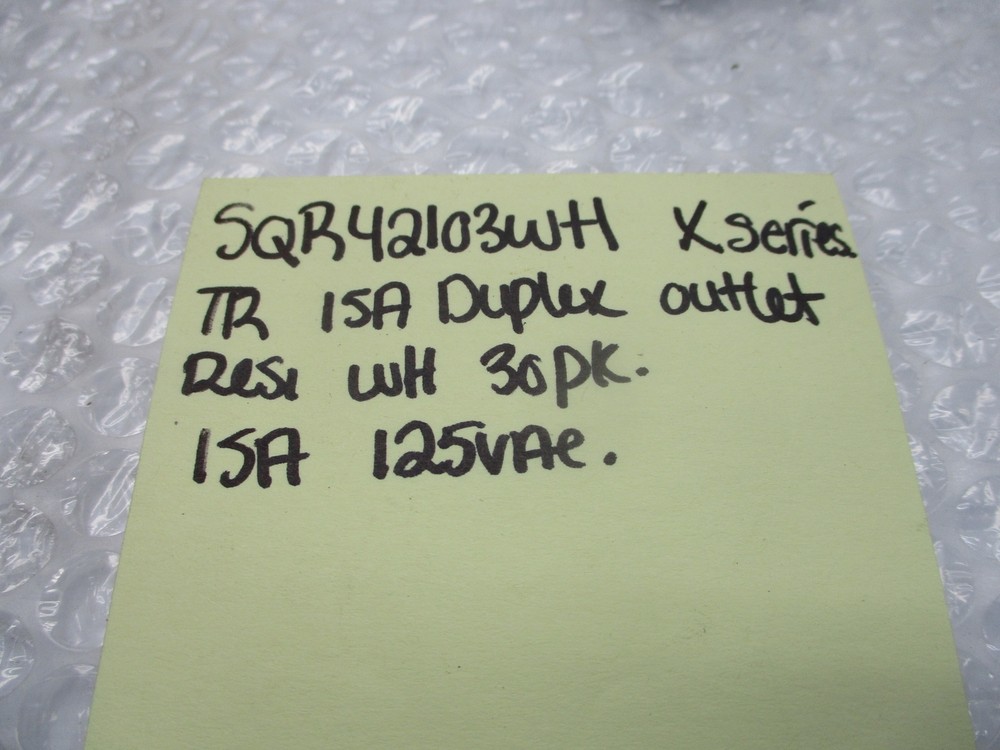 SQR42103WH X series.
TR 15A Duplex outlet
Resi WH 30pk.
15A 125VAC.